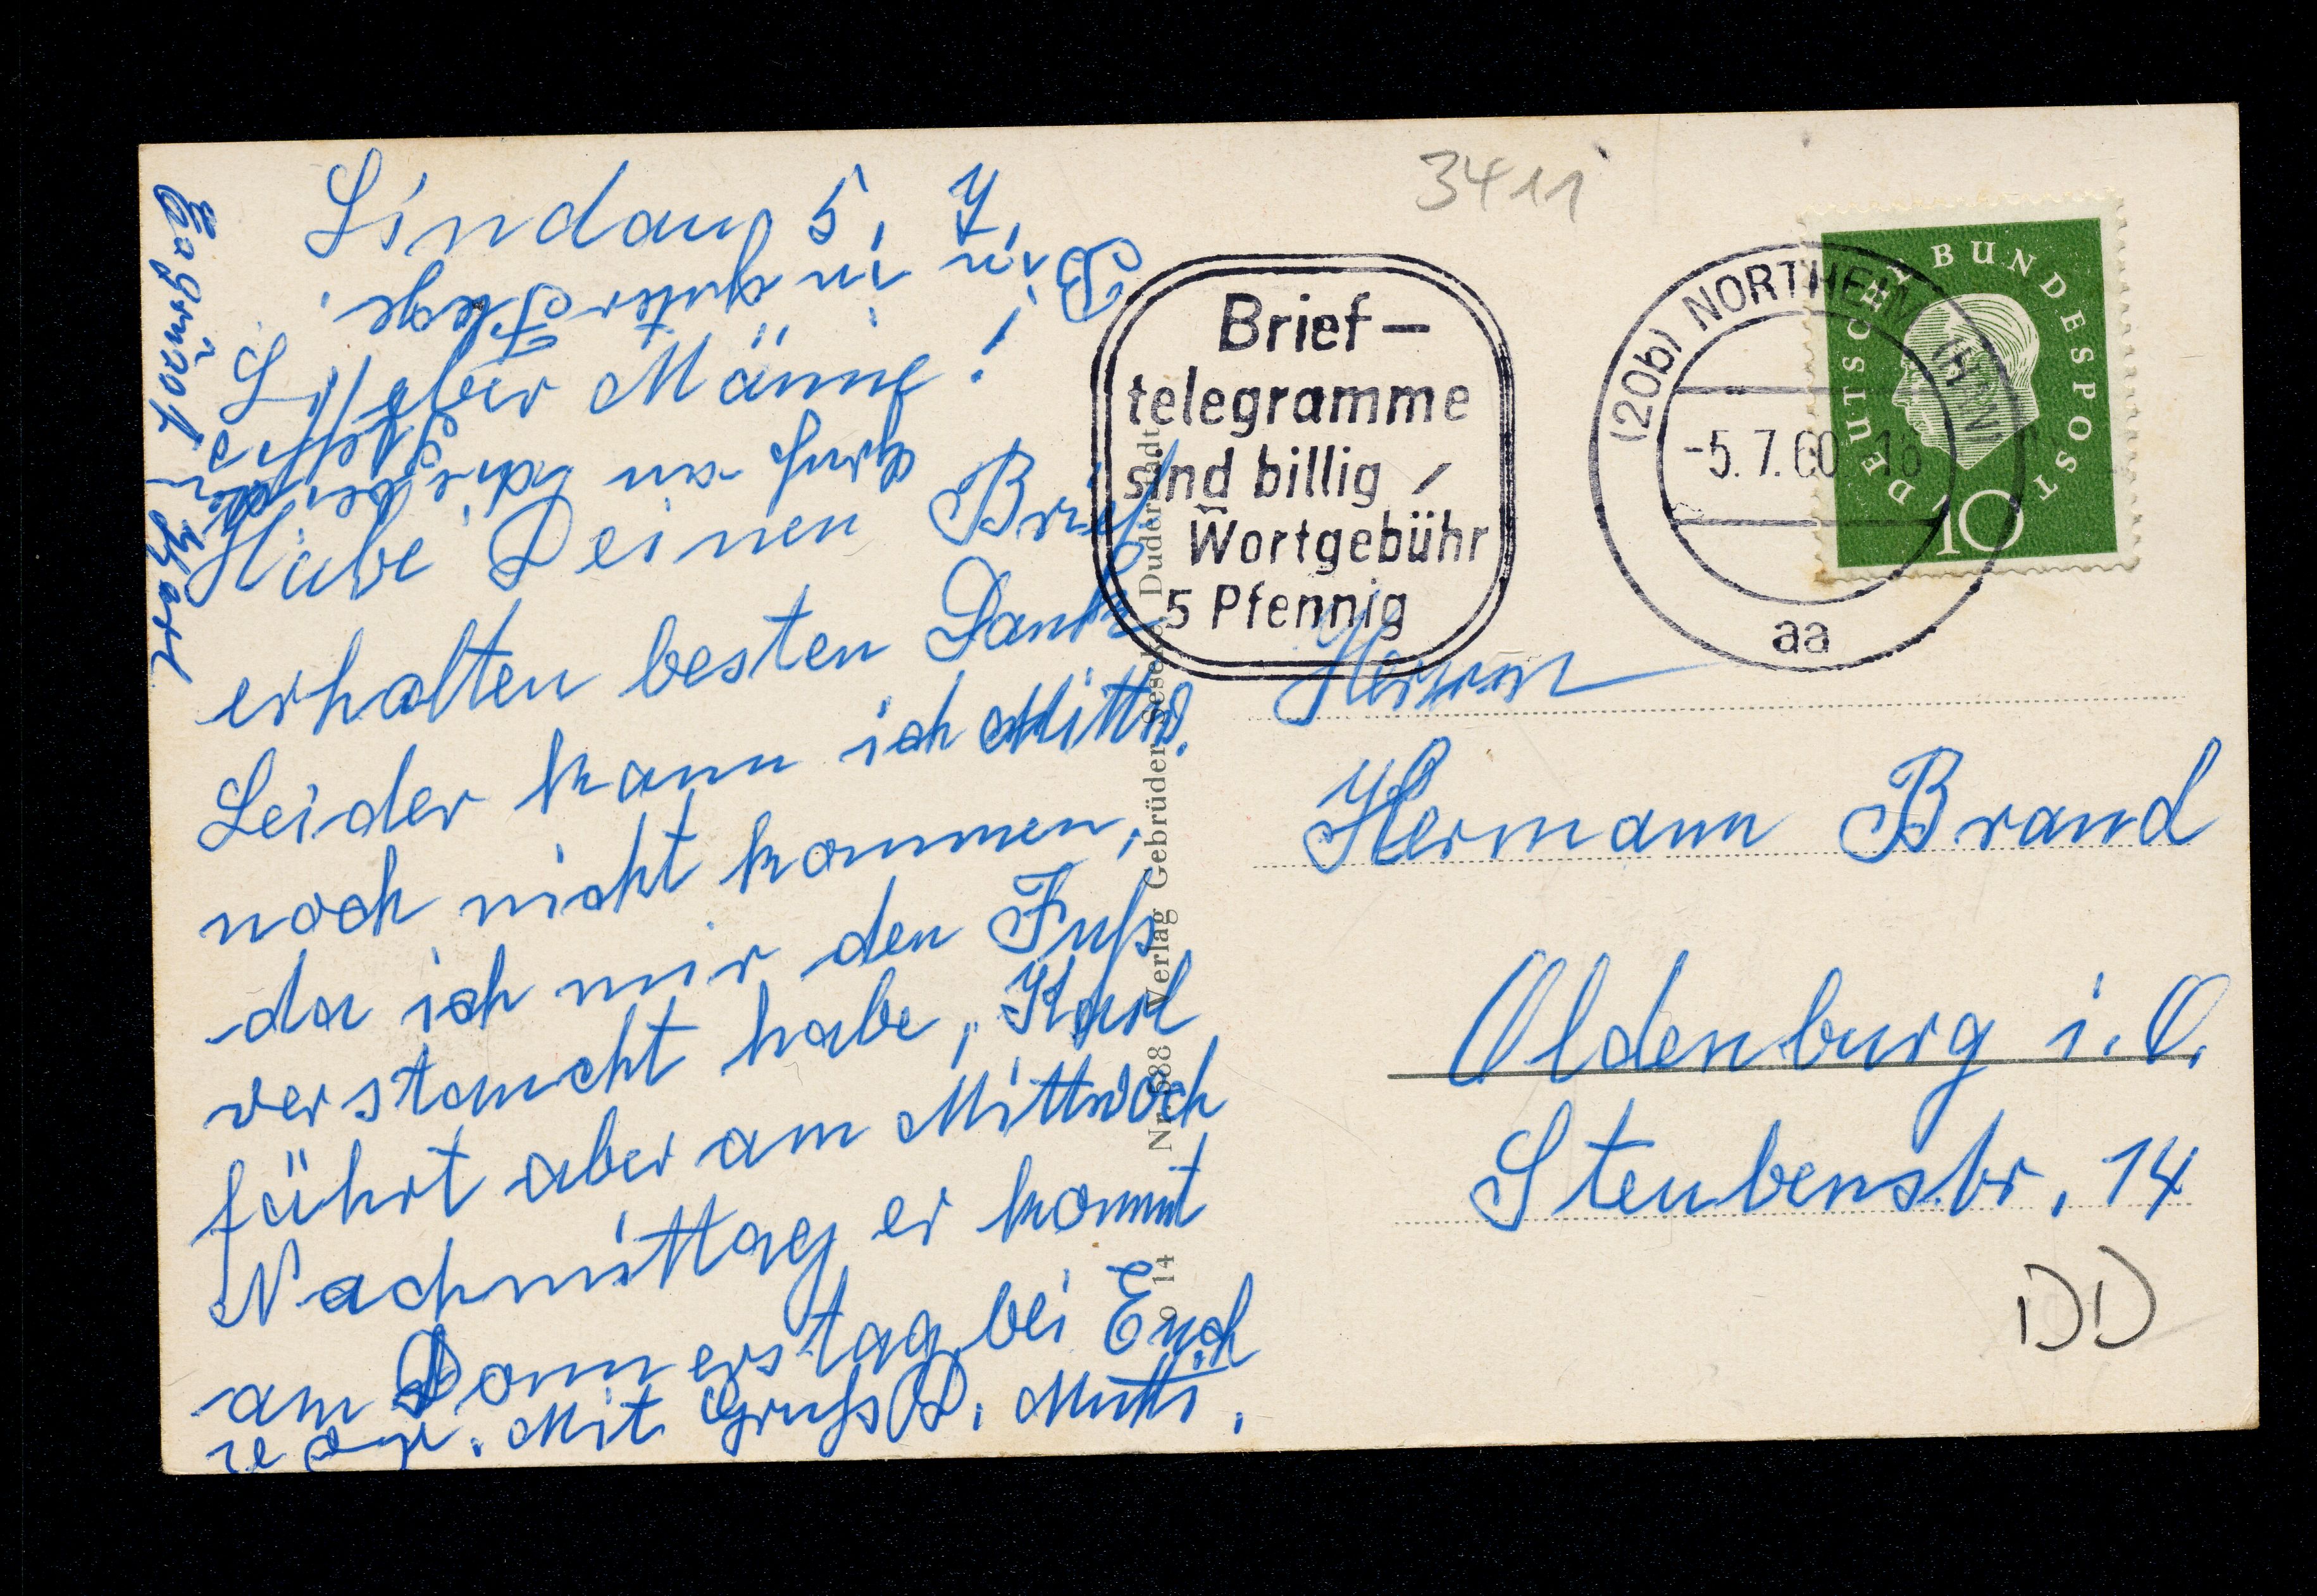 Lindau 5. 7.
Lieber Männe!
Habe Deinen Brief
erhalten besten Dank
Leider kann ich Mittw.
noch nicht kommen,
da ich mir den Fuß
verstaucht habe, Karl
fährt aber am Mittwoch
Nachmittag er kommt
am Donnerstag bei Euch
Mit Gruß D. Mutti.
Bin in guter Pflege.
Es grüßt Karl
Nr. 688 Verlag Gebrüder Seseke, Duderstadt
14
3411
Brief-
telegramme
sind billig
Wortgebühr
5 Pfennig
(20b) NORTHEIM (HAN)
-5.7.60-18
aa
DEUTSCHE BUNDESPOST
10
Herrn
Hermann Brand
Oldenburg i. O.
Steubenstr. 14
DD